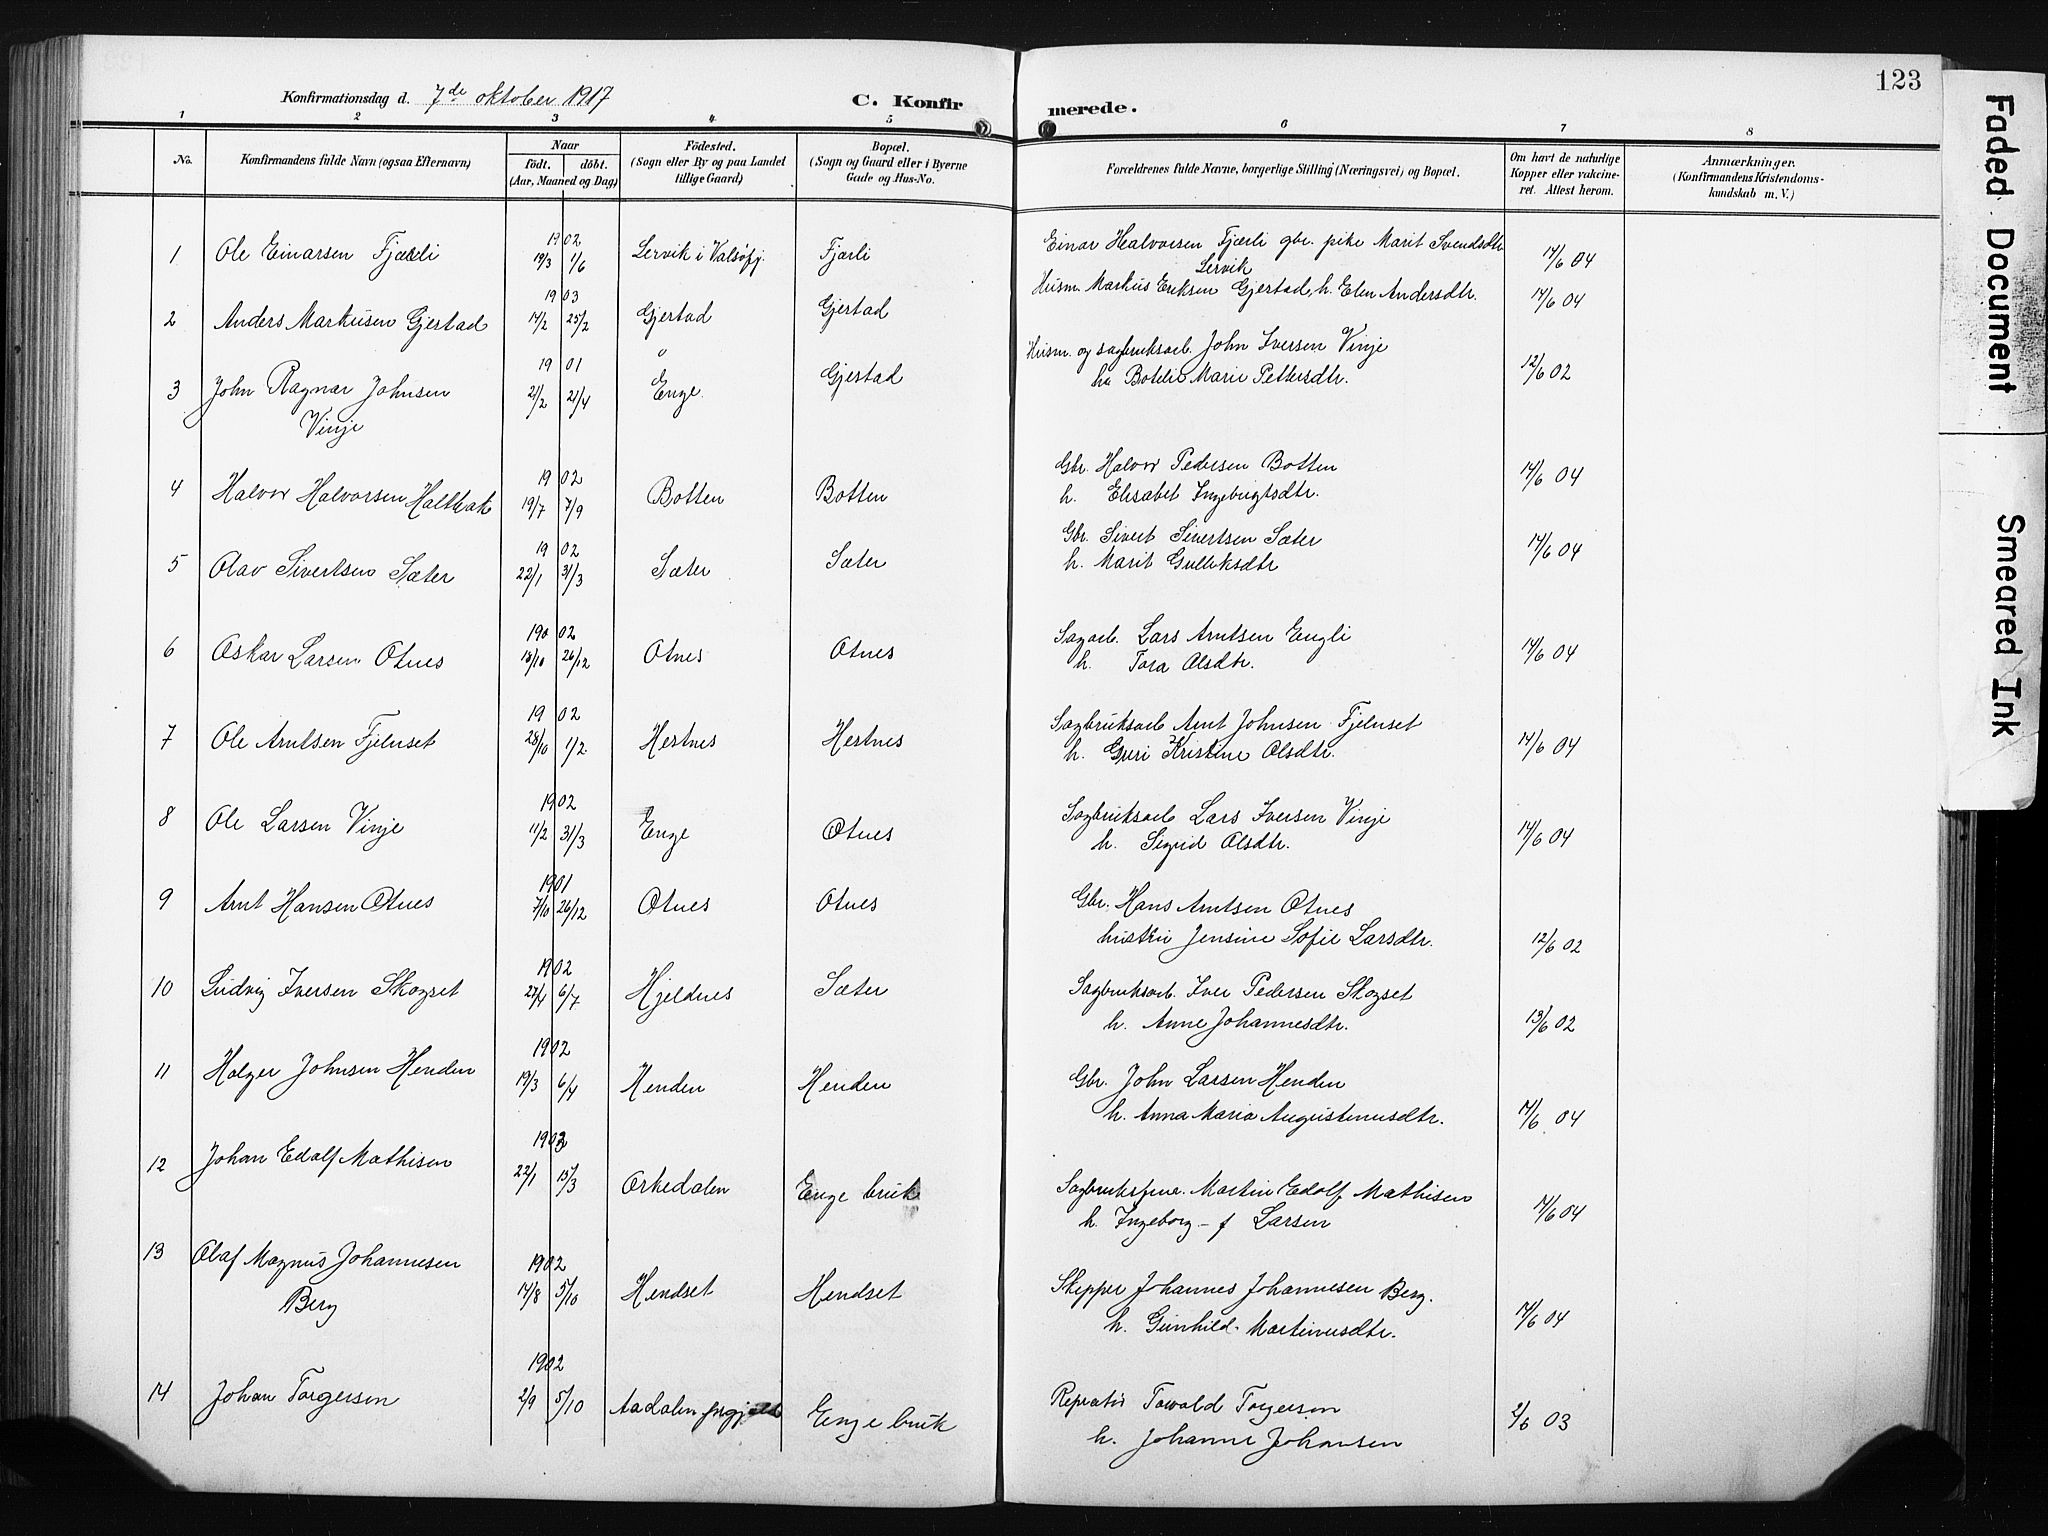 123
Konfirmationsdag d. 7de oktober 1917 C. Konfirmerede.
1 2 3 4 5 6 7 8
No. Konfirmandens fulde Navn (ogsaa Efternavn) Naar født. døbt. (Aar, Maaned og Dag) Fødested. (Sogn eller By og paa Landet tillige Gaard) Bopæl. (Sogn og Gaard eller i Byerne Gade og Hus-No. Forældrenes fulde Navne, borgerlige Stilling (Næringsvei) og Bopæl. Om havt de naturlige Kopper eller vakcineret. Attest herom. Anmærkninger. (Konfirmandens Kristendomskundskab m. V.)
1 Ole Einarsen Fjærli 1902 19/3 1/6 Lervik i Valsøfj. Fjærli Einar Halvorsen Fjærli gbr. pike Marit Svendsdtr 14/6 04
Lervik
2 Anders Markusen Gjerstad 1903 14/2 25/2 Gjerstad Gjerstad Husm. Markus Eriksen Gjerstad, h. Elen Andersdtr. 14/6 04
3 John Ragnar Johnsen 1901 21/2 21/4 " Enge. Gjerstad Husm. og sagbruksarb. John Iversen Vinje 12/6 02
Vinje h. Botelie Marie Pettersdtr.
4 Halvor Halvorsen Haltbak 1902 19/7 7/9 Botten Botten Gbr. Halvor Pedersen Botten 14/6 04
h. Elisabet Ingebrigtsdtr.
5 Olav Sivertsen Sæter 1902 22/1 31/3 Sæter Sæter Gbr. Sivert Sivertsen Sæter 14/6 04
h. Marit Gulleksdtr
6 Oskar Larsen Otnes 1902 18/10 26/12 Otnes Otnes Sagarb. Lars Arntsen Engli 14/6 04
h. Tora Olsdtr.
7 Ole Arntsen Fjelnset 1902 28/10 1/2 Hestnes Hestnes Sagbruksarb Arnt Johnsen Fjelnset 14/6 04
h. Guri Kristine Olsdtr.
8 Ole Larsen Vinje 1902 11/2 31/3 Enge Otnes Sagbruksarb Lars Iversen Vinje 14/6 04
h. Sigrid Olsdtr.
9 Arnt Hansen Otnes 1901 7/10 26/12 Otnes Otnes Gbr. Hans Arntsen Otnes
hustru Jensine Sofie Larsdtr. 12/6 02
10 Ludvig Iversen Skogset 1902 27/4 6/7 Hjeldnes Sæter Sagbruksarb. Iver Pedersen Skogset
h. Anne Johannesdtr. 13/6 02
11 Holger Johnsen Henden 1902 19/3 6/4 Henden Henden Gbr. John Larsen Henden
h. Anna Maria Augustinusdtr. 14/6 04
12 Johan Edolf Mathisen 1903 22/1 15/3 Orkedalen Enge bruk Martin Edolf Mathisen
h. Ingeborg - f Larsen 14/6 04
13 Olaf Magnus Johannesen 1902 14/8 5/10 Hendset Hendset Skipper Johannes Johannesen Berg.
Berg h. Gunhild Martinusdtr. 14/6 04
14 Johan Torgersen 1902 2/9 5/10 Aadalen prgjæld Enge bruk Torvald Torgersen
h. Johanne Johansen 2/6 03
Faded Document
Smeared Ink